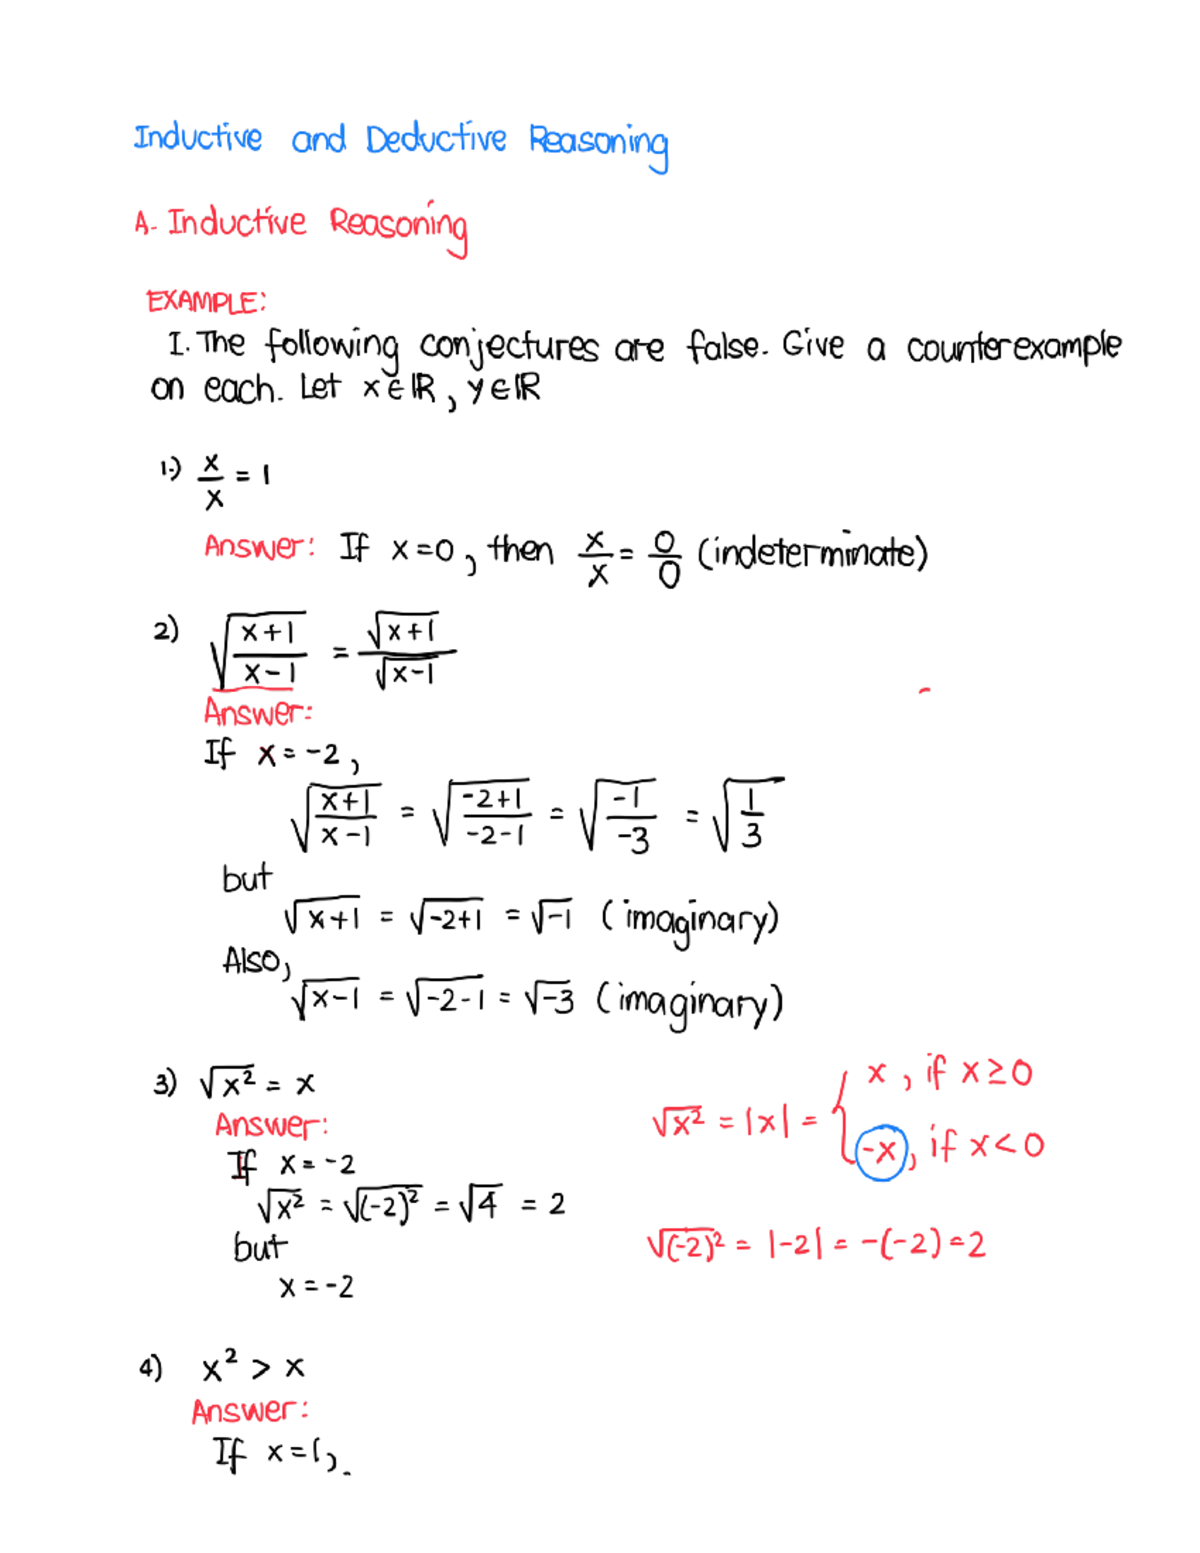 Inductive and Deductive Reasoning
A. Inductive Reasoning
EXAMPLE:
I. The following conjectures are false. Give a counterexample
on each. Let x∈ℝ, y∈ℝ
1.) x/x = 1
Answer: If x=0, then x/x = 0/0 (indeterminate)
2) √((x+1)/(x-1)) = √(x+1)/√(x-1)
Answer:
If x = -2,
√((x+1)/(x-1)) = √((-2+1)/(-2-1)) = √(-1/-3) = √(1/3)
but
√(x+1) = √(-2+1) = √-1 (imaginary)
Also,
√(x-1) = √(-2-1) = √-3 (imaginary)
3) √(x²) = x
Answer:
If x = -2
√(x²) = √((-2)²) = √4 = 2
but
x = -2
√(x²) = |x| = { x, if x ≥ 0
-x, if x < 0
√((-2)²) = |-2| = -(-2) = 2
4) x² > x
Answer:
If x=1,.